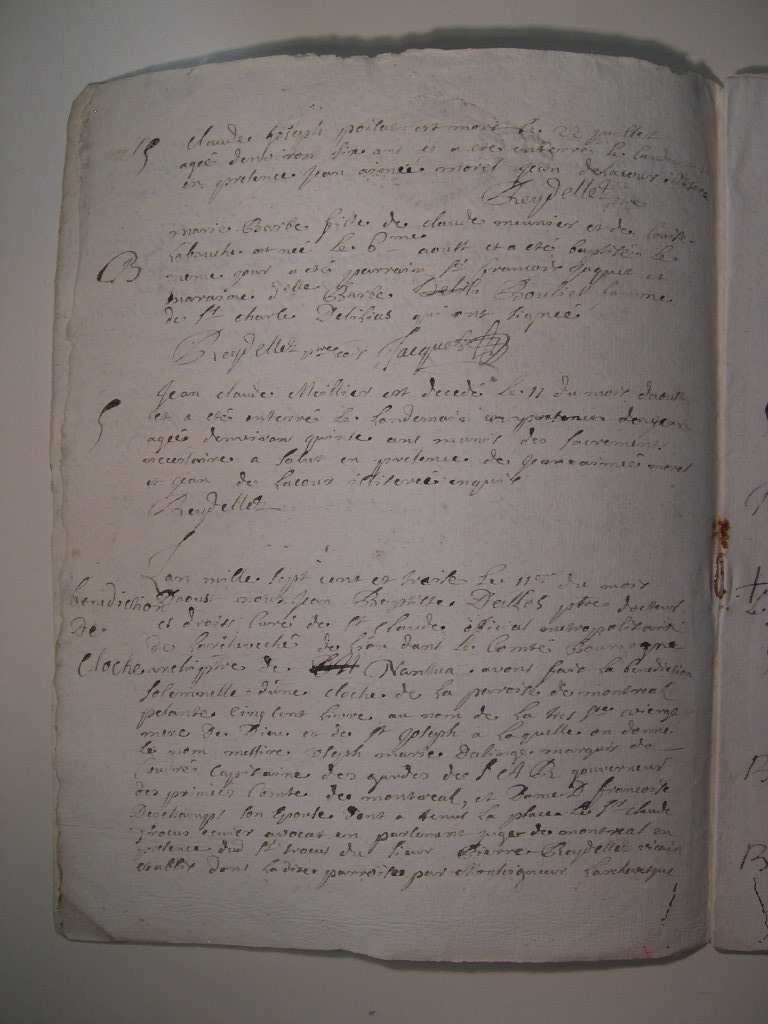 S
Claude Joseph est mort le 22 juillet
agée denviron six ans et a eté enterré le
en presence Jean aimée morel jean delacour
Reydellet ptre
B
marie Barbe fille de claude meunier et de
est née le 6me aoust et a eté baptisée le
meme jour a eté parrain Sr francois Jaquet et
maraine delle Barbe Bouliet famme
de Sr charle Delilias qui ont signée
Reydellet ptre vic Jacquet
S
Jean claude Meillier est decedé le 11 du mois daoust
et a eté enterré le landemain
agée denviron quinse ans munit des sacrements
necessaire a salut en presence de jean aimée morel
et jean de lacour illiterée enquis
Reydellet
benediction
de
cloche
Lan mille sept cent et traite le 11e du mois
Daoust nous Jean Baptiste ptre docteur
es droits curé de St Claude official metropolitain
de larcheveché de Lion dans le Comté Bourgogne
archiptre de Nantua avons fait la benediction
solemnelle dune cloche de la paroise de montreal
pesante cinq cent livre au nom de la tres Ste vierge
mere de Dieu et de St Joseph a laquelle on donne
le nom messire Joseph marie marquis de
Capitaine des gardes de S A R gouverneur
des princes Comte de montreal, et Dame D francoise
Deschamps son Epouse dont a tenus la place le Sr claude
avocat en parlement juge de montreal en
presence dud Sr trocus du sieur Pierre Reydellet vicair
etablis dans ladite parroise par Monseigneur Larchevesque